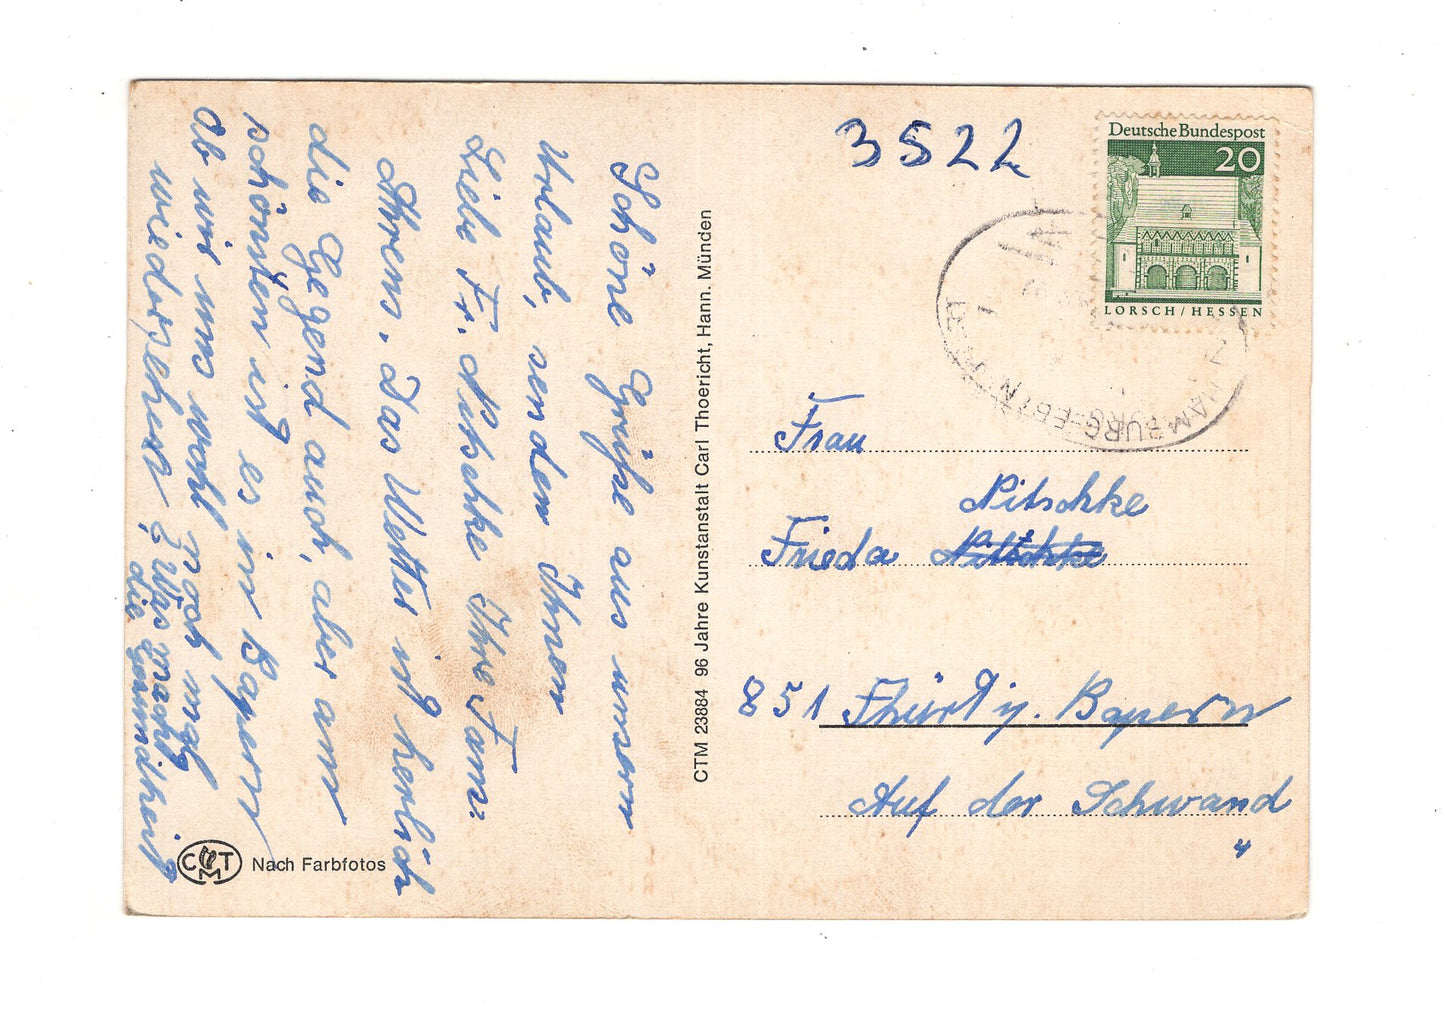 Schöne Grüße aus unserm
Urlaub, senden Ihnen
Liebe Fr. Nitschke Ihre Fam.
Ahrens. Das Wetter ist herlich
die Gegend auch, aber am
schönsten ist es in Bayern
ob wir uns wohl noch mal
wiedersehen? Was macht
die Gesundheit?
CTM
Nach Farbfotos
CTM 23884 96 Jahre Kunstanstalt Carl Thoericht, Hann. Münden
3522
Deutsche Bundespost
20
LORSCH/HESSEN
HAMBURG
Frau
Nitschke
Frieda Nitschke
851 Fürth i. Bayern
Auf der Schwand
4